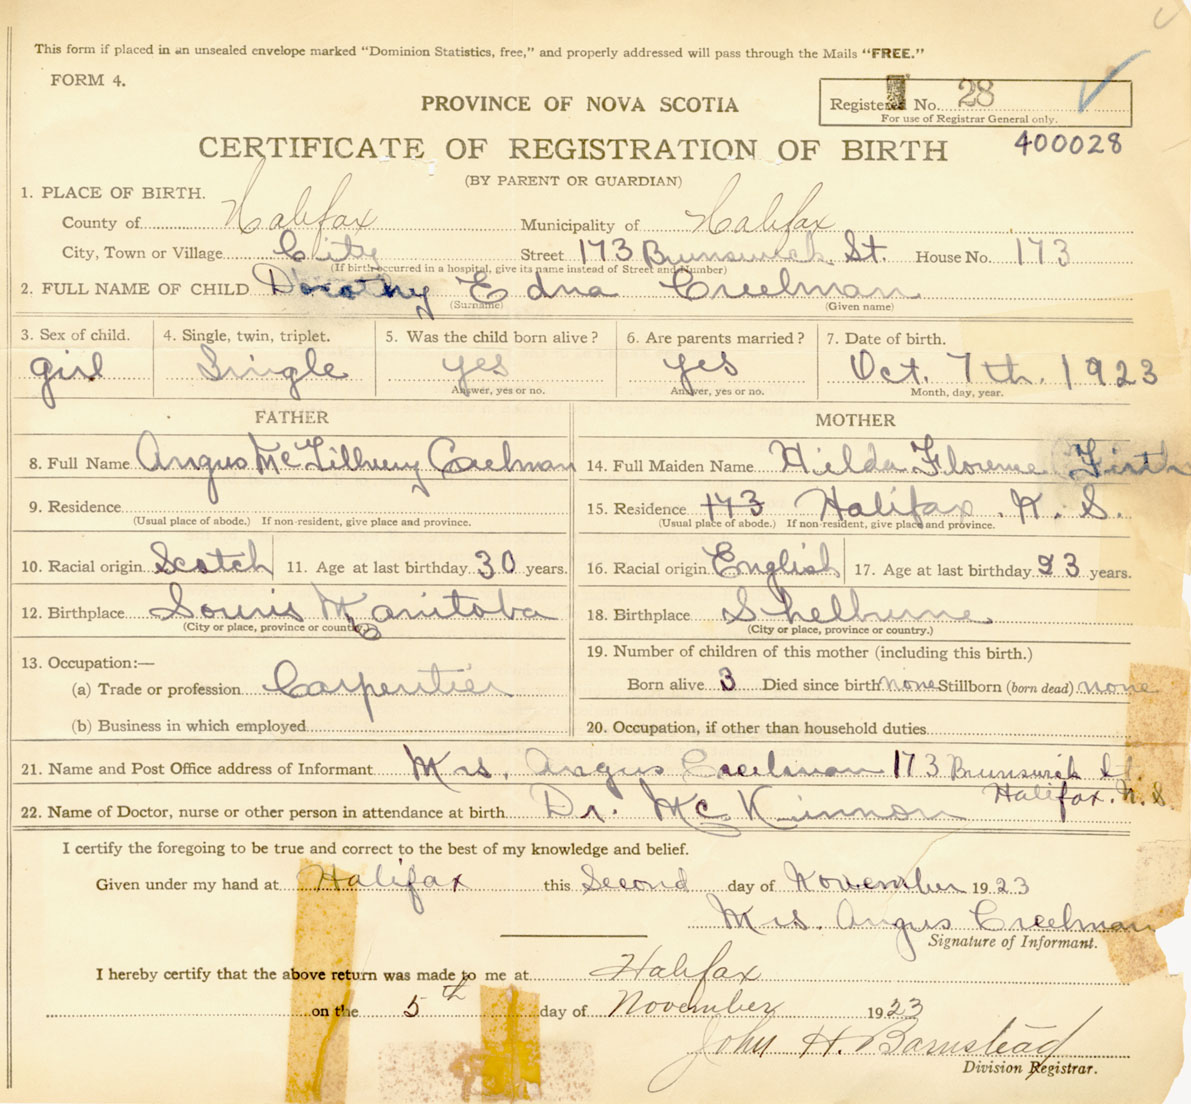 This form if placed in an unsealed envelope marked "Dominion Statistics, free," and properly addressed will pass through the Mails "FREE."
FORM 4.
PROVINCE OF NOVA SCOTIA
Registered No. 28
For use of Registrar General only.
CERTIFICATE OF REGISTRATION OF BIRTH
400028
(BY PARENT OR GUARDIAN)
1. PLACE OF BIRTH.
County of Halifax Municipality of Halifax
City, Town or Village City Street 173 Brunswick St. House No. 173
(If birth occurred in a hospital, give its name instead of Street and Number)
2. FULL NAME OF CHILD Dorothy Edna Creelman
(Surname) (Given name)
3. Sex of child. 4. Single, twin, triplet. 5. Was the child born alive? 6. Are parents married? 7. Date of birth.
girl Single yes yes Oct. 7th. 1923
Answer, yes or no. Answer, yes or no. Month, day, year.
FATHER MOTHER
8. Full Name Angus Creelman 14. Full Maiden Name Hilda Florence Firth
9. Residence 15. Residence 173 Halifax. N. S.
(Usual place of abode.) If non-resident, give place and province. (Usual place of abode.) If non-resident, give place and province.
10. Racial origin Scotch 11. Age at last birthday 30 years. 16. Racial origin English 17. Age at last birthday 23 years.
12. Birthplace Souris Manitoba 18. Birthplace Shelburne
(City or place, province or country) (City or place, province or country.)
13. Occupation:— 19. Number of children of this mother (including this birth.)
(a) Trade or profession Carpentier Born alive 3 Died since birth none Stillborn (born dead) none
(b) Business in which employed 20. Occupation, if other than household duties
21. Name and Post Office address of Informant Mrs. Angus Creelman 173 Brunswick St.
Halifax. N. S.
22. Name of Doctor, nurse or other person in attendance at birth Dr. McKinnon
I certify the foregoing to be true and correct to the best of my knowledge and belief.
Given under my hand at Halifax this Second day of November 1923
Mrs. Angus Creelman
Signature of Informant.
I hereby certify that the above return was made to me at Halifax
on the 5th day of November 1923
John H. Barnstead
Division Registrar.